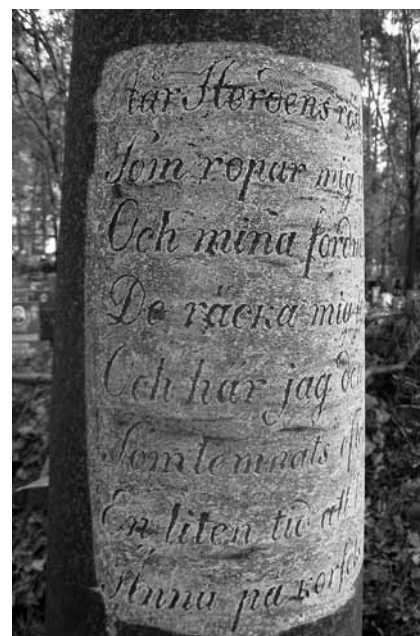 Här Herdens rös
Som ropar mig
Och mina fordn
De räcka mig
Och här jag de
Som lemnats eft
En liten tid att
Ännu på